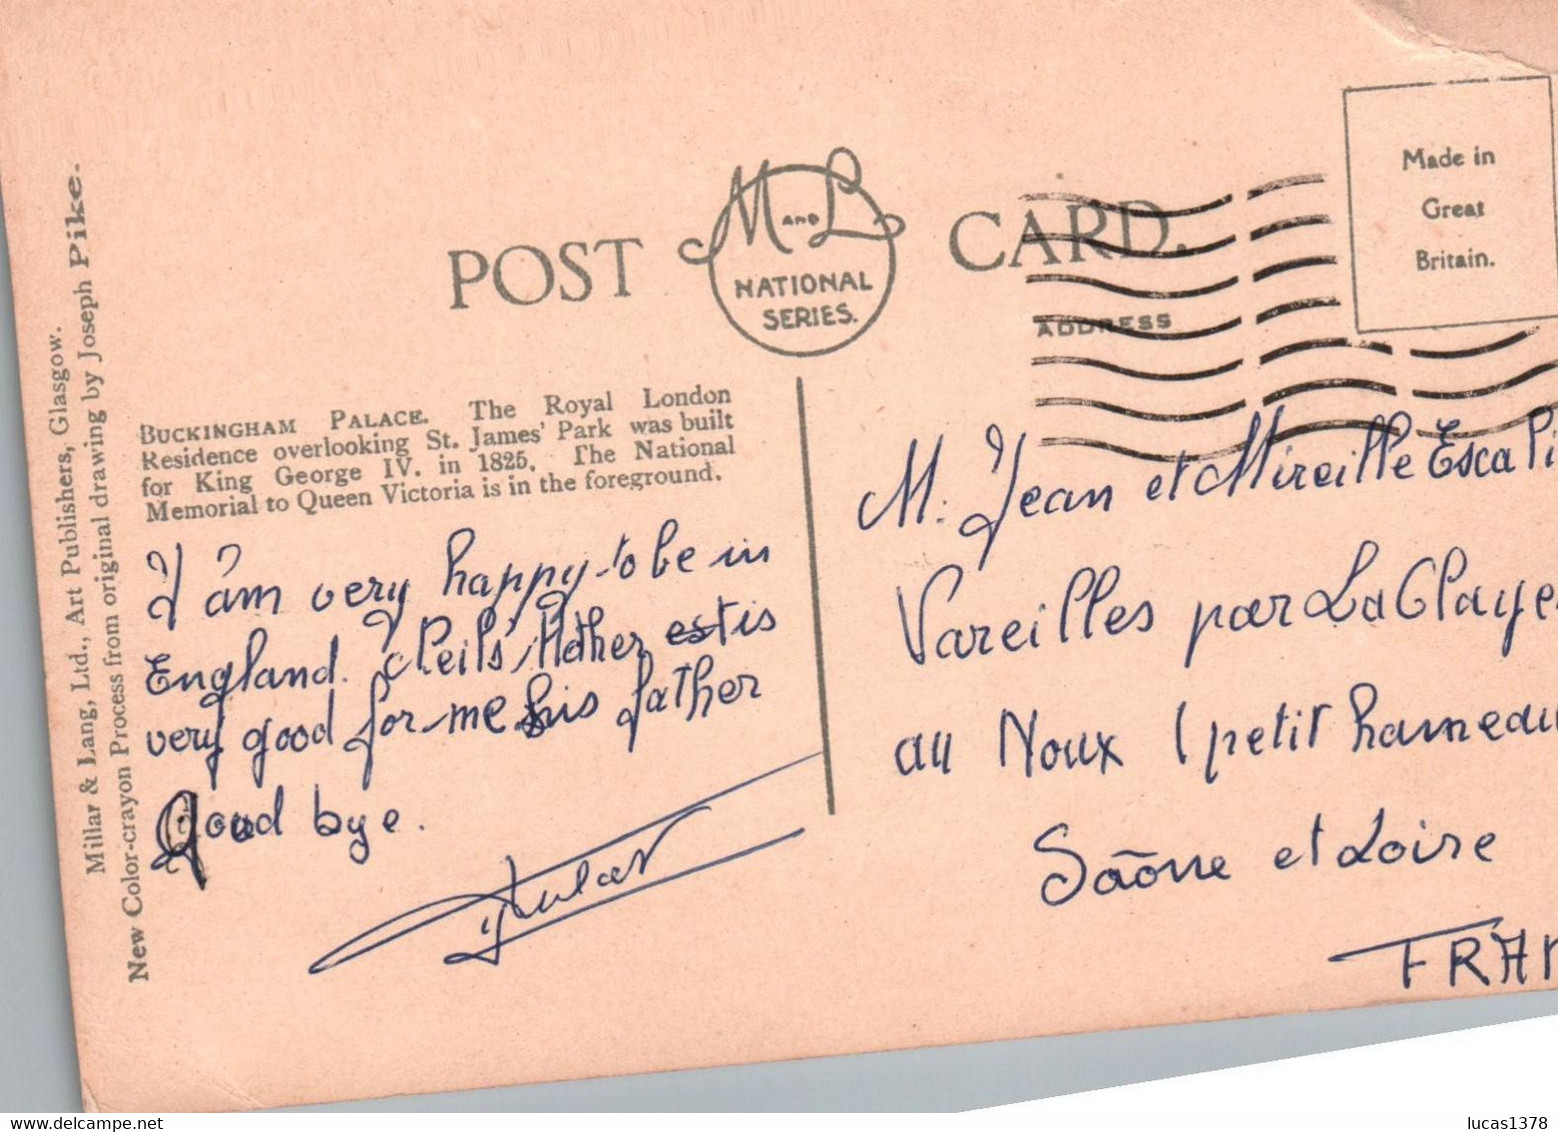 POST CARD.
M AND L
NATIONAL
SERIES.
ADDRESS
Made in
Great
Britain.
Millar & Lang, Ltd., Art Publishers, Glasgow.
New Color-crayon Process from original drawing by Joseph Pike.
BUCKINGHAM PALACE. The Royal London
Residence overlooking St. James' Park was built
for King George IV. in 1825. The National
Memorial to Queen Victoria is in the foreground.
I am very happy to be in
England. Neil's Mother est is
very good for me his father
Good bye.
M. Jean et Mireille Escali
Vareilles par La Claye
au Noux (petit hameau
Saône et Loire
FRAN
lucas1378